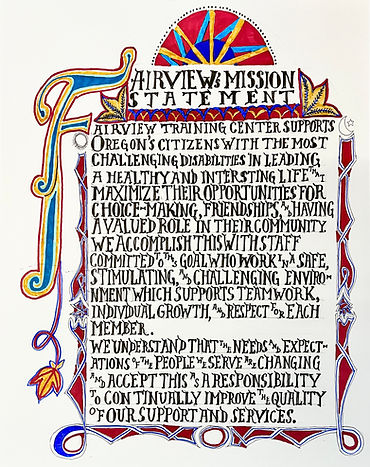 FAIRVIEW'S MISSION
STATEMENT
FAIRVIEW TRAINING CENTER SUPPORTS
OREGON'S CITIZENS WITH THE MOST
CHALLENGING DISABILITIES IN LEADING
A HEALTHY AND INTERSTING LIFE THAT
MAXIMIZE THEIR OPPORTUNITIES FOR
CHOICE-MAKING, FRIENDSHIPS, AND HAVING
A VALUED ROLE IN THEIR COMMUNITY
WE ACCOMPLISH THIS WITH STAFF
COMMITTED TO THIS GOAL WHO WORK IN A SAFE,
STIMULATING, AND CHALLENGING ENVIRO-
NMENT WHICH SUPPORTS TEAMWORK,
INDIVDUAL GROWTH, AND RESPECT FOR EACH
MEMBER.
WE UNDERSTAND THAT THE NEEDS AND EXPECT-
ATIONS OF THE PEOPLE WE SERVE ARE CHANGING
AND ACCEPT THIS AS A RESPONSIBILITY
TO CONTINUALLY IMPROVE THE QUALITY
OF OUR SUPPORT AND SERVICES.